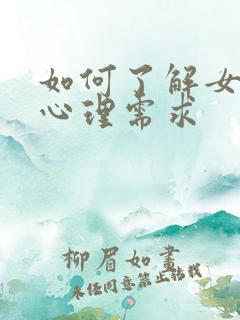 如何了解女
心理需求
柳眉如画
未经同意禁止转载